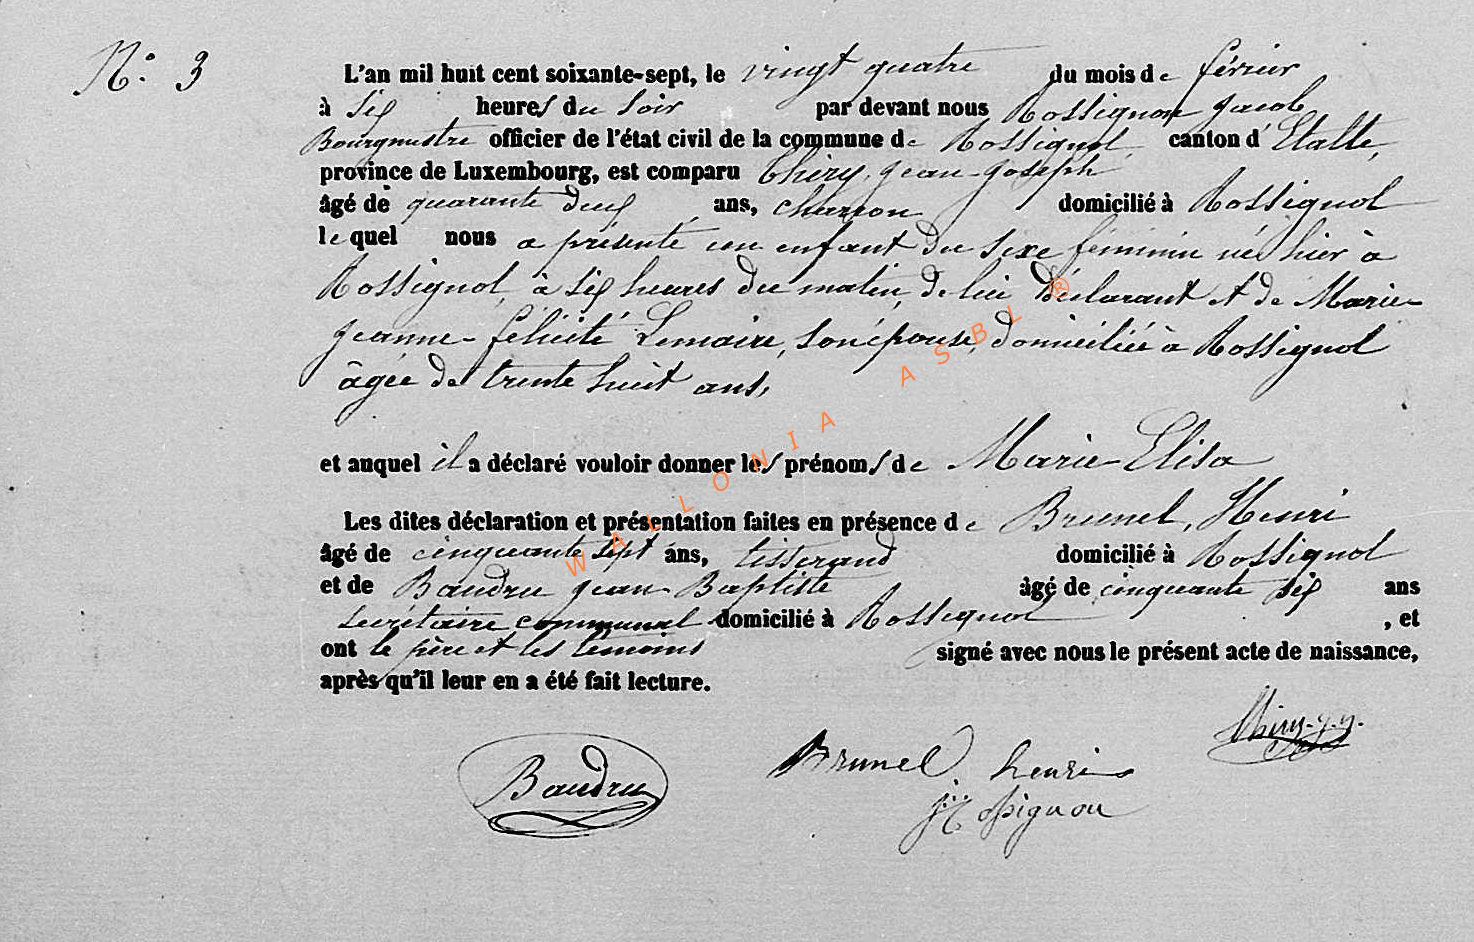 N.° 3
L'an mil huit cent soixante-sept, le vingt quatre du mois de février
à six heures du soir par devant nous Rossignon Jacob
Bourgmestre officier de l'état civil de la commune de Rossignol canton d'Etalle,
province de Luxembourg, est comparu Thiry, Jean-Joseph
âgé de quarante deux ans, charron domicilié à Rossignol
lequel nous a présenté un enfant du sexe féminin né hier à
Rossignol, à six heures du matin, de lui déclarant et de Marie-
Jeanne-Félicité Lemaire, son épouse, domiciliée à Rossignol
âgée de trente huit ans,
et auquel il a déclaré vouloir donner les prénoms de Marie-Elisa
Les dites déclaration et présentation faites en présence de Brunel, Henri
âgé de cinquante sept ans, tisserand domicilié à Rossignol
et de Baudru Jean-Baptiste âgé de cinquante six ans
secrétaire communal domicilié à Rossignol , et
ont le père et les témoins signé avec nous le présent acte de naissance,
après qu'il leur en a été fait lecture.
Thiry. j. j.
Baudru Brunel henri
j: Rossignon
WALLONIA ASBL ®